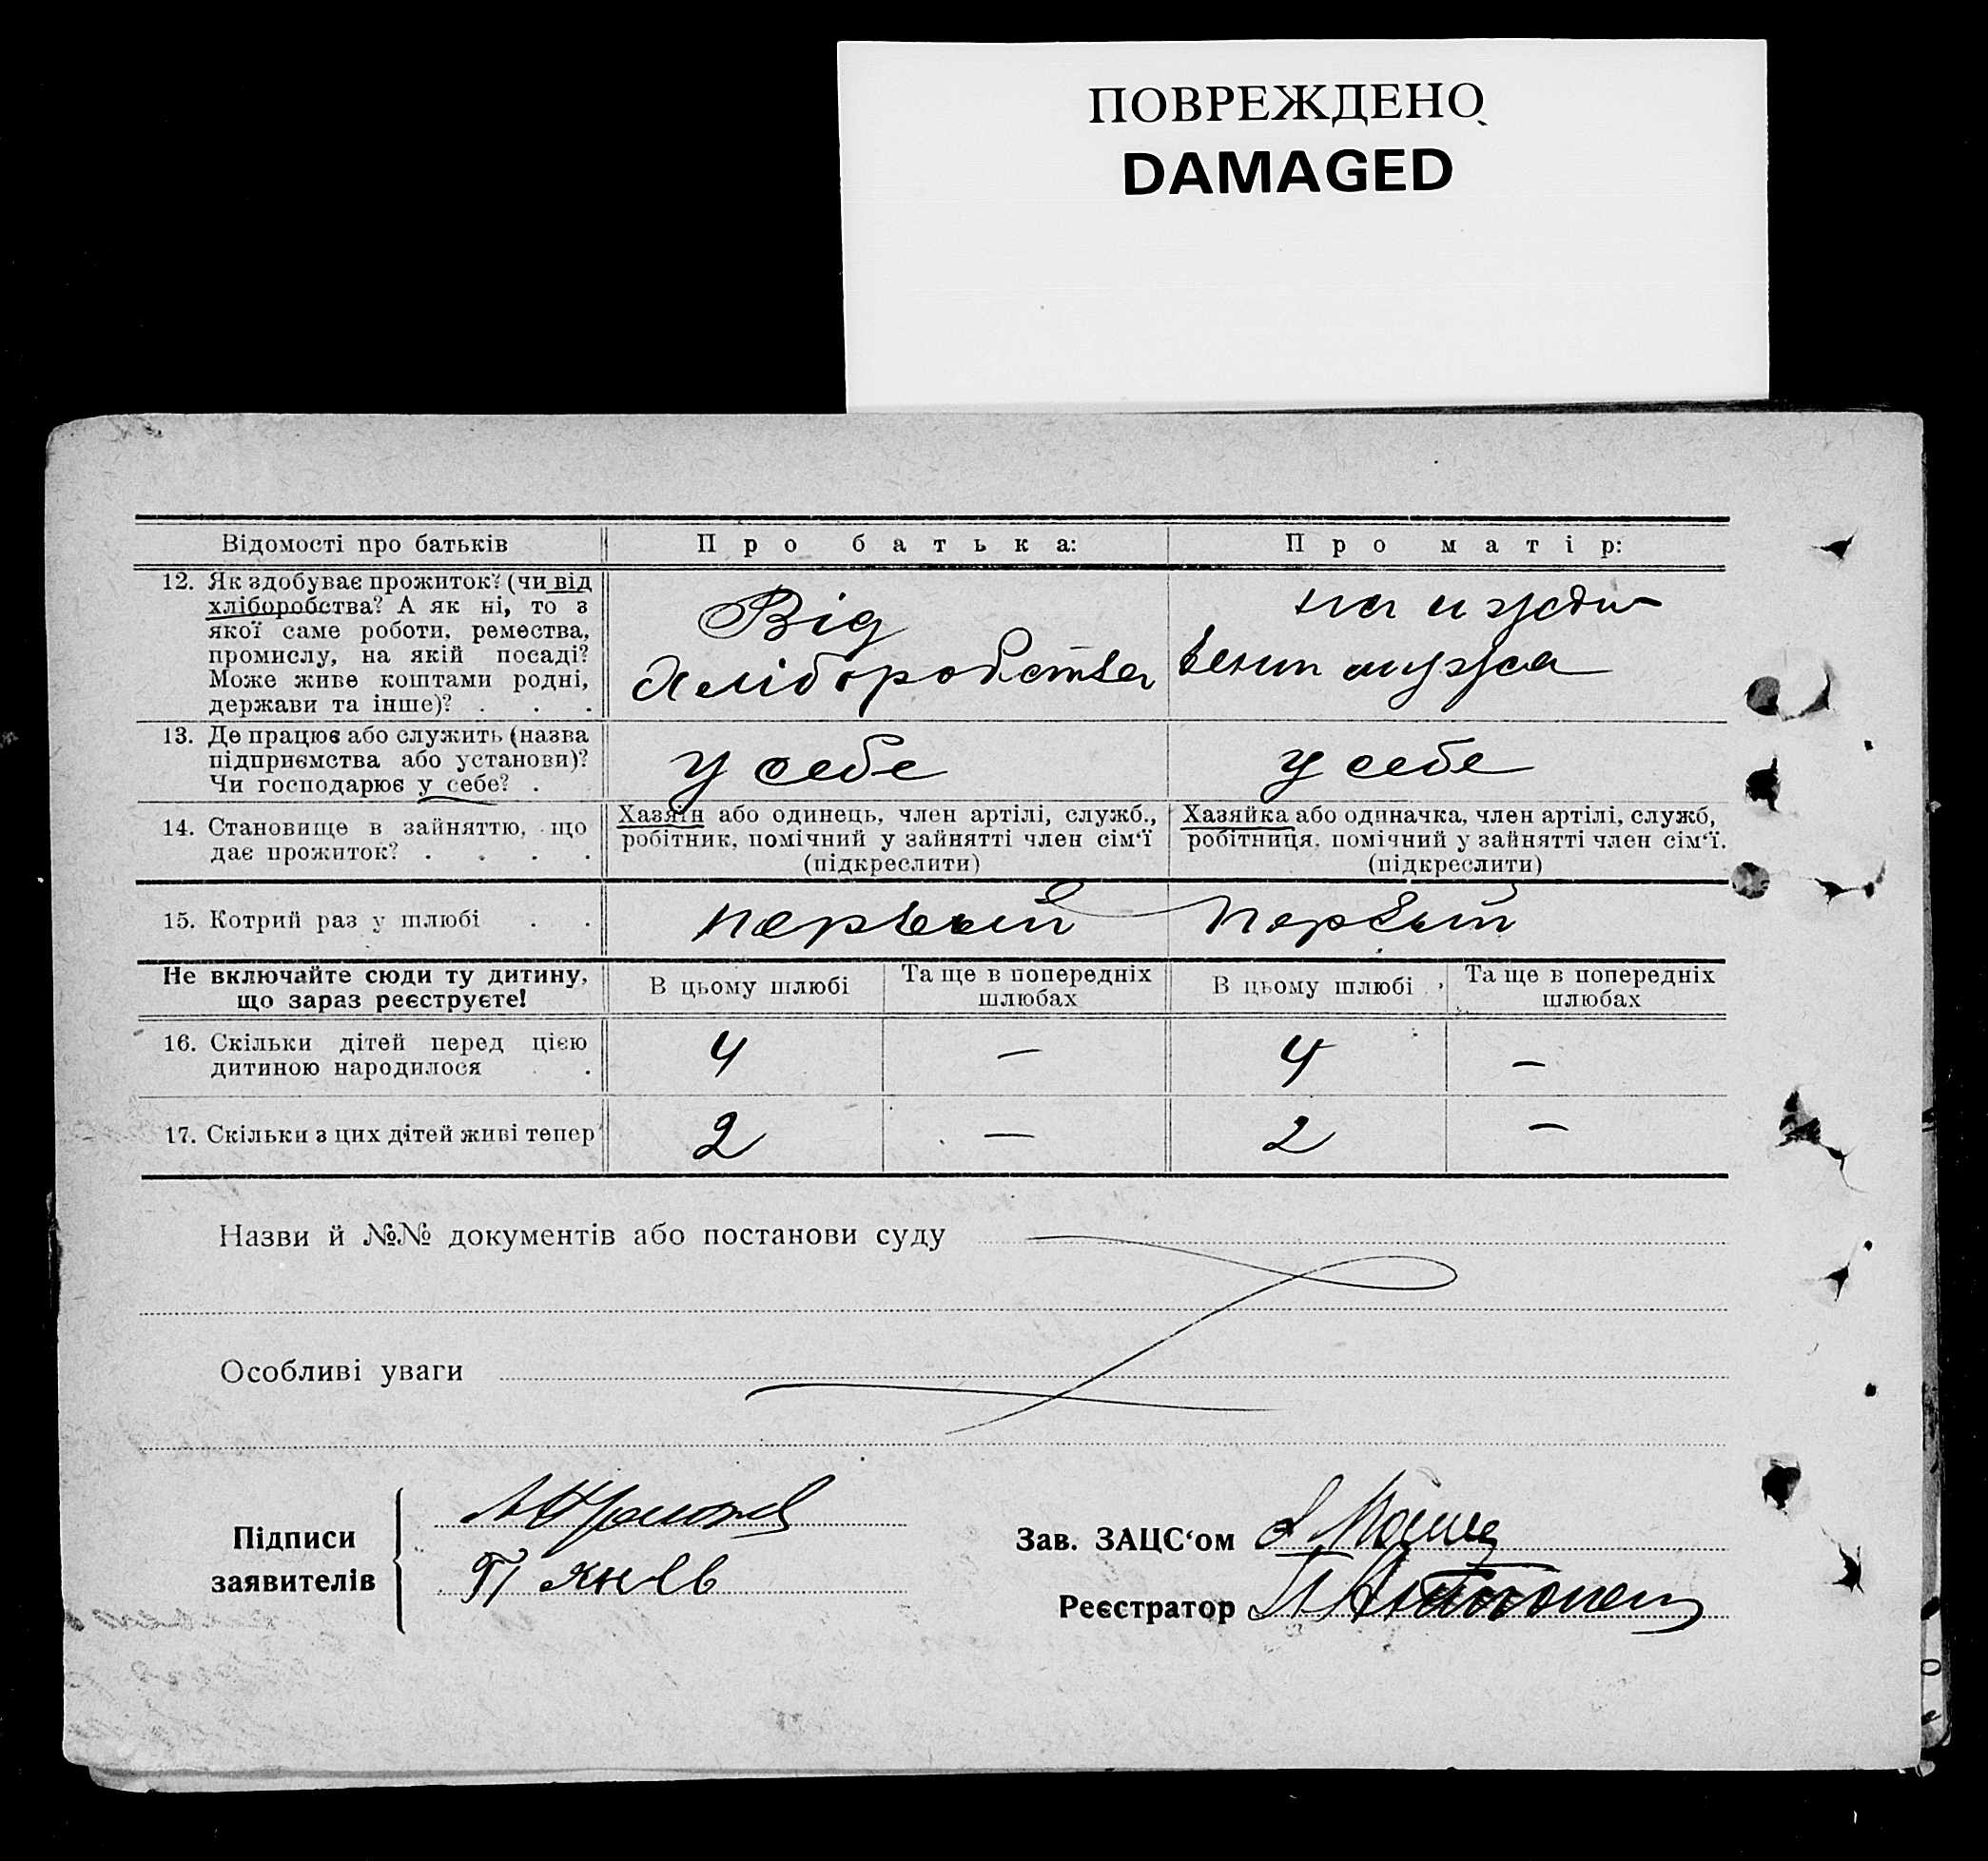 ПОВРЕЖДЕНО
DAMAGED
Відомості про батьків
Про батька:
Про матір:
12. Як здобуває прожиток? (чи від
хліборобства? А як ні, то з
якої саме роботи, ремества,
промислу, на якій посаді?
Може живе коштами родні,
держави та інше)? . . .
Від
хліборобства
на ижди-
вении мужа
13. Де працює або служить (назва
підприємства або установи)?
Чи господарює у себе? .
у себе
у себе
14. Становище в зайняттю, що
дає прожиток? . . . .
Хазяїн або одинець, член артілі, служб.,
робітник, помічний у зайнятті член сім‘ї
(підкреслити)
Хазяйка або одиначка, член артілі, служб,
робітниця, помічний у зайнятті член сім‘ї.
(підкреслити)
15. Котрий раз у шлюбі . .
первый
первый
Не включайте сюди ту дитину,
що зараз реєструєте!
В цьому шлюбі
Та ще в попередніх
шлюбах
В цьому шлюбі
Та ще в попередніх
шлюбах
16. Скільки дітей перед цією
дитиною народилося .
4
—
4
—
17. Скільки з цих дітей живі тепер
2
—
2
—
Назви й №№ документів або постанови суду
Особливі уваги
Підписи
заявителів
Зав. ЗАЦС‘ом
Реєстратор